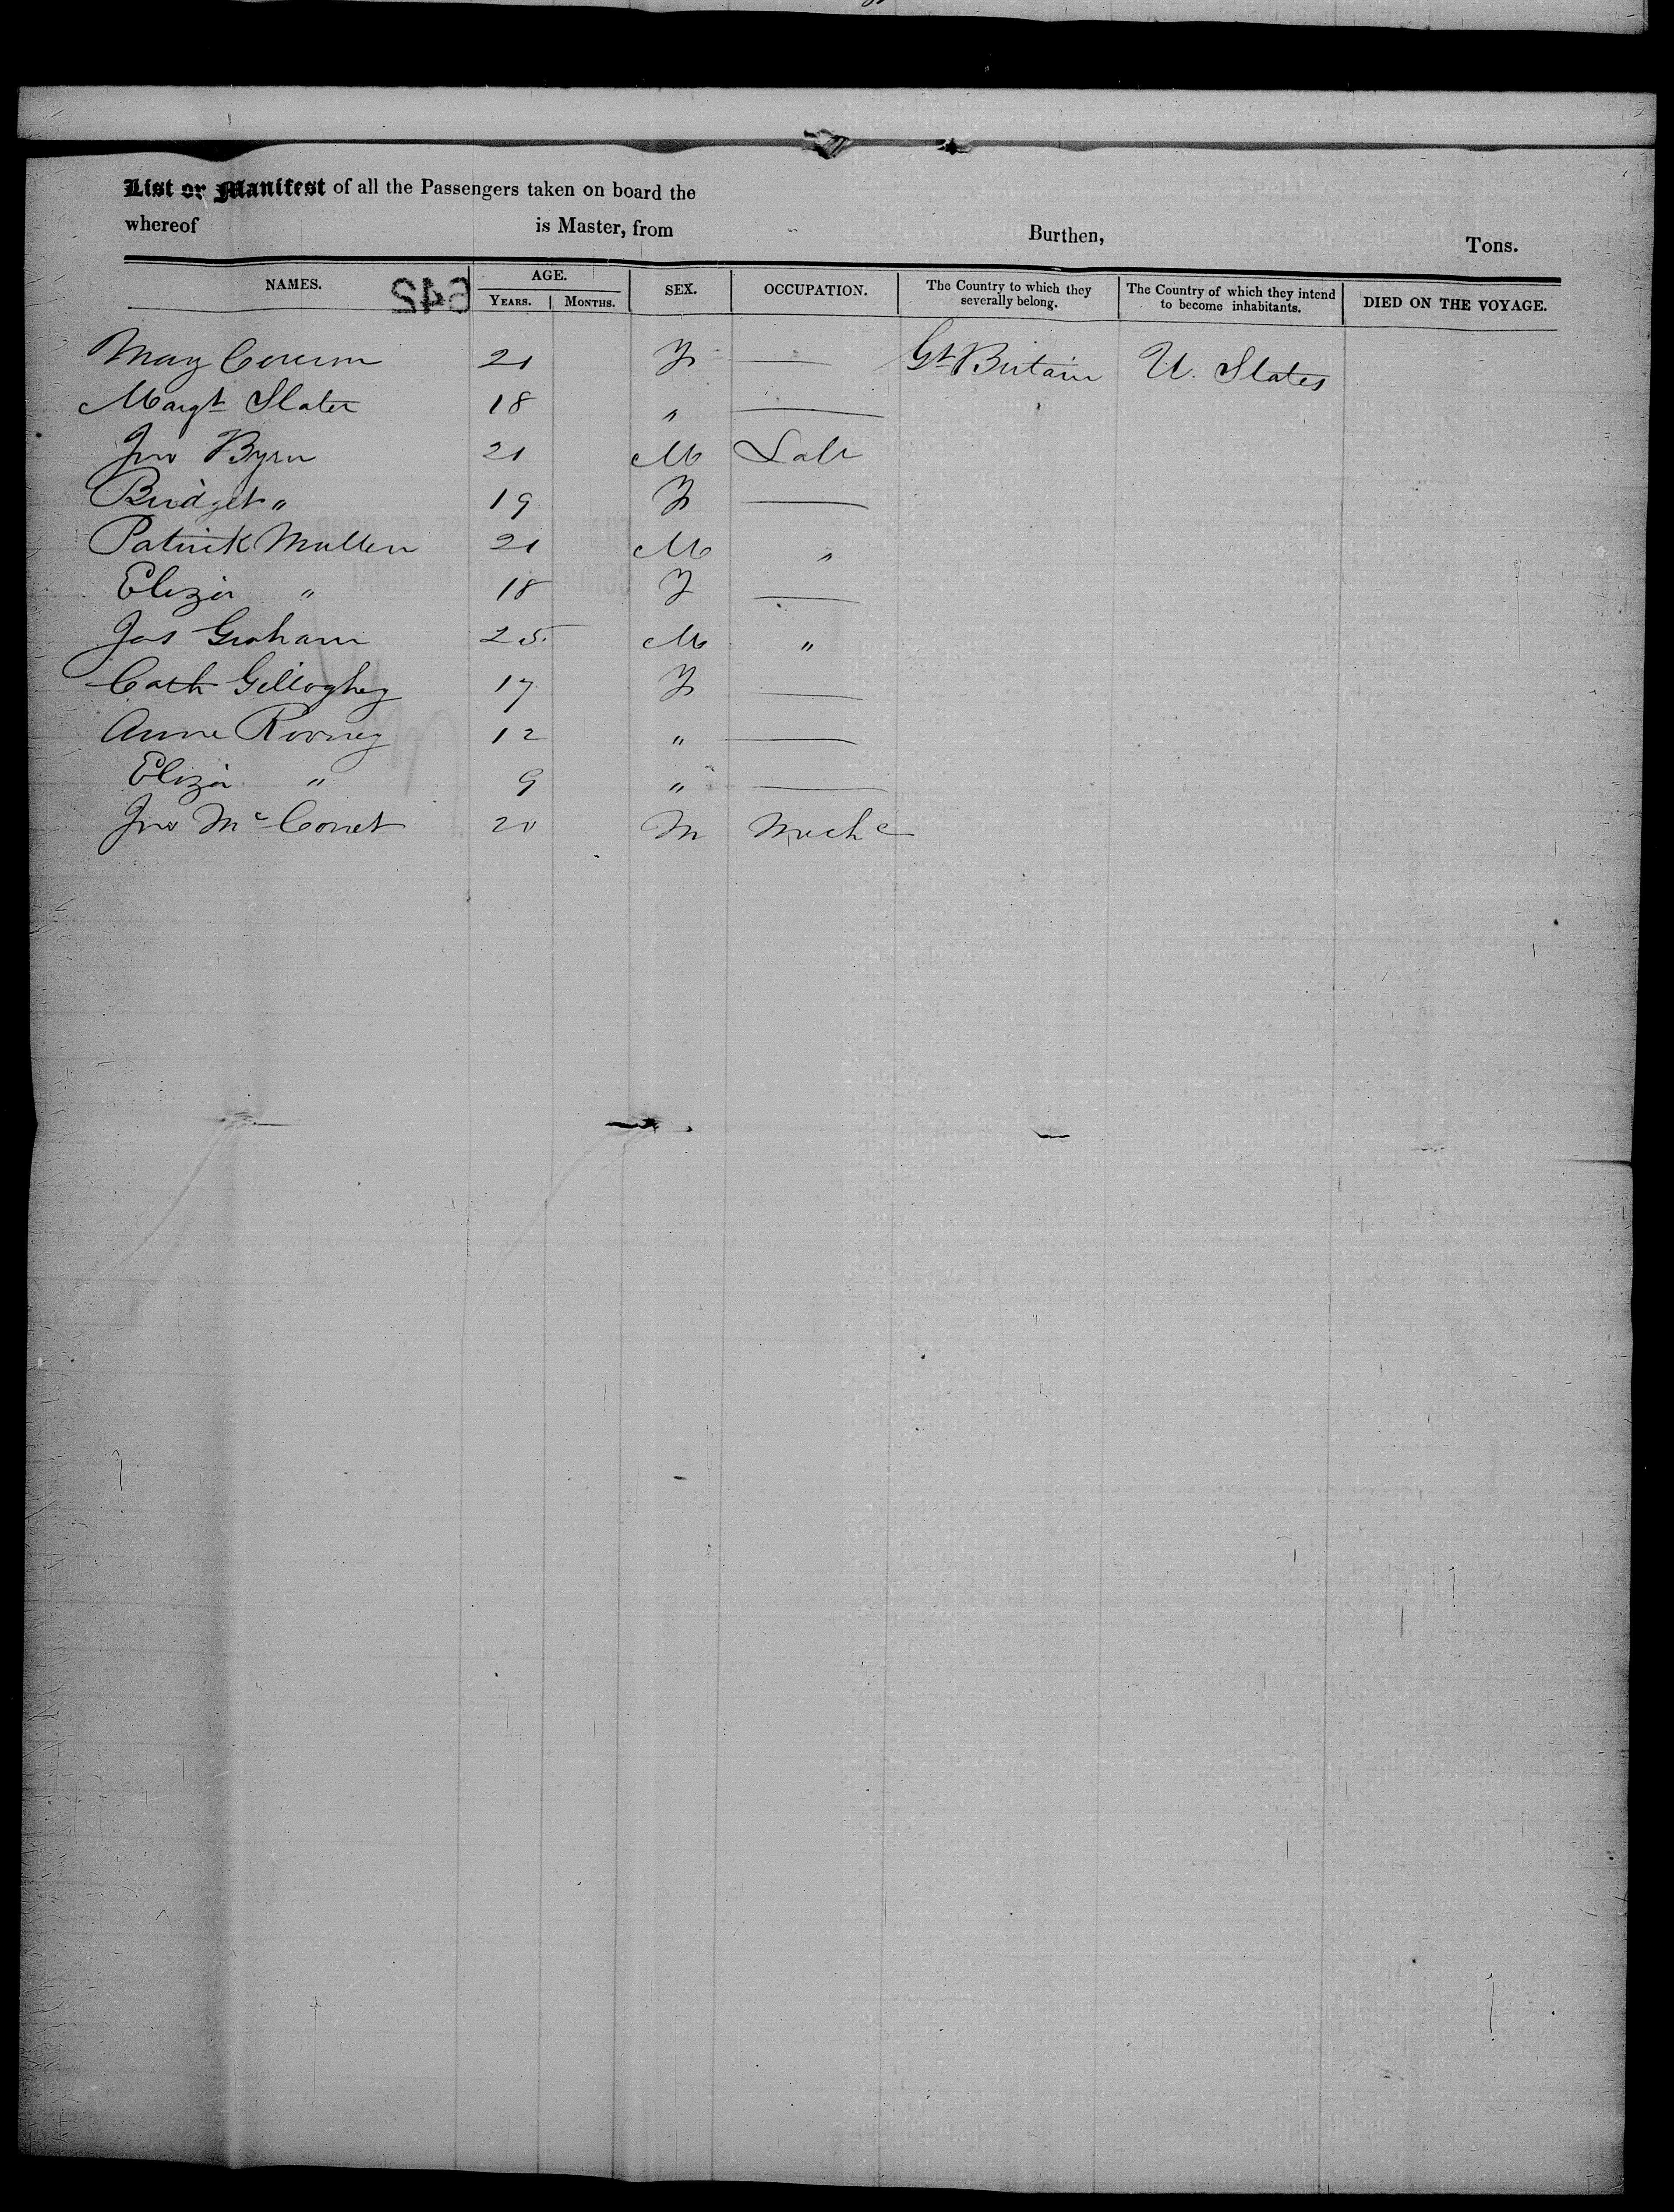 List or Manifest of all the Passengers taken on board the
whereof is Master, from Burthen, Tons.
NAMES. AGE. SEX. OCCUPATION. The Country to which they severally belong. The Country of which they intend to become inhabitants. DIED ON THE VOYAGE.
YEARS. MONTHS.
642
Mary 21 F — Gt Britain U. States
Margt Slater 18 " —
Jno Byrn 21 M Labr
Bridget " 19 F —
Patrick Mullen 21 M "
Eliza " 18 F —
Jas Graham 25 M "
Cath Gilloghey 17 F —
Anne Rooney 12 " —
Eliza " 9 " —
Jno Mc 20 M Mechc